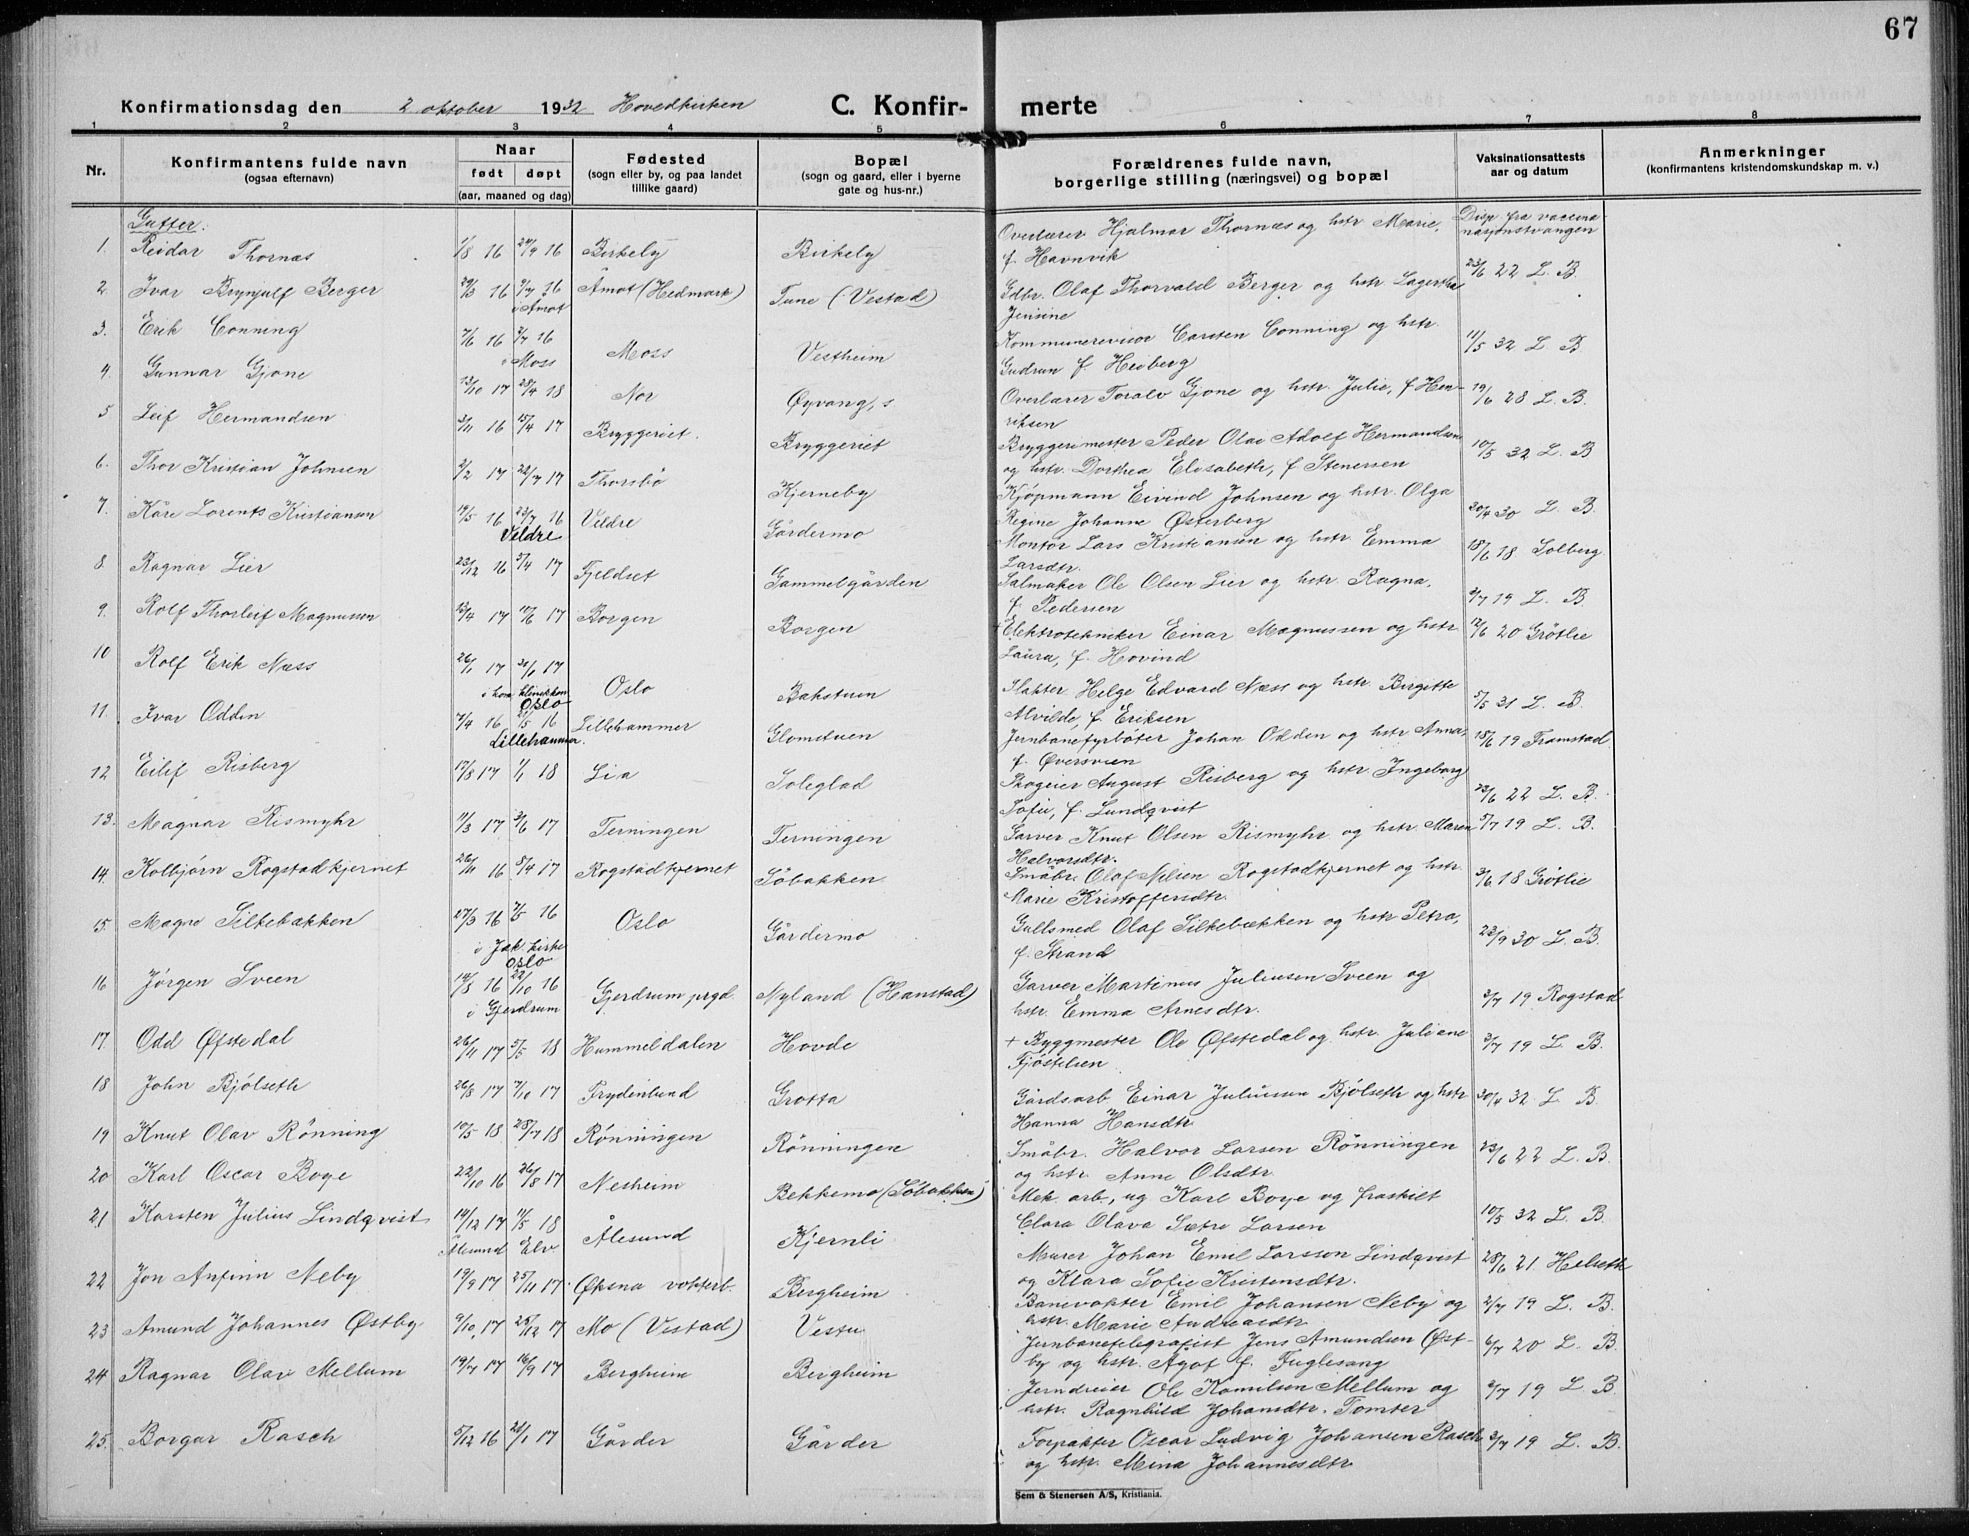 67
Konfirmationsdag den 2 oktober 1932 Hovedkirken C. Konfir- merte
1 2 3 4 5 6 7 8
Nr.
Konfirmantens fulde navn
(ogsaa efternavn)
Naar
født døpt
(aar, maaned og dag)
Fødested
(sogn eller by, og paa landet
tillike gaard)
Bopæl
(sogn og gaard, eller i byerne
gate og hus-nr.)
Forældrenes fulde navn,
borgerlige stilling (næringsvei) og bopæl
Vaksinationsattests
aar og datum
Anmerkninger
(konfirmantens kristendomskundskap m. v.)
Gutter:
1. Reidar Thornæs 1/8 16 24/9 16 Birkely Birkely Overlærer Hjalmar Thornæs og hstr Marie, Disp. fra vaccina-
f. Havnvik nasjonstvangen
2. Ivar Brynjulf Berger 29/3 16 9/7 16 Åmot (Hedmark) Tune (Vestad) Gdbr. Olaf Thorvald Berger og hstr Lagertha 23/6 22 L. B.
i Åmot Jensine
3. Erik Conning 7/6 16 2/7 16 Moss Vestheim Kommunerevisor Carsten Conning og hstr. 11/5 32 L. B.
i Moss Gudrun f. Heiberg
4. Gunnar Gjone 13/10 17 28/4 18 Nor Øyvang, s Overlærer Toralv Gjone og hstr. Julie, f Hen- 19/6 28 L. B.
riksen
5 Leif Hermandsen 3/11 16 15/4 17 Bryggeriet. Bryggeriet Bryggerimester Peder Olai Adolf Hermandsen 10/5 32 L. B
og hstr. Dorthea Elisabeth, f Stenersen
6. Thor Kristian Johnsen 2/2 17 22/7 17 Thorsbö Kjerneby Kjöpmann Eivind Johnsen og hstr. Olga 20/4 30 L. B.
Regine Johanne Østerberg
7. Kåre Lorents Kristiansen 17/5 16 23/7 16 Veldre Gårdermo Montör Lars Kristiansen og hstr. Emma 18/6 18 Solberg
Veldre Larsdtr.
8. Ragnar Lier 23/12 16 5/4 17 Fjeldset Gammelgården Salmaker Ole Olsen Lier og hstr. Ragna, 2/7 19 L. B.
f. Pedersen
9. Rolf Thorleif Magnussen 13/4 17 10/6 17 Borgen Borgen + Elektrotekniker Einar Magnussen og hstr 12/6 20 Grötlie
Laura, f. Hovind
10 Rolf Erik Næss 26/1 17 30/1 17 Oslo Bakstuen Slakter Helge Edvard Næss og hstr Birgitte 5/5 31 L. B.
klinikken Oslo Alvilde, f. Eriksen
11. Ivar Odden 7/4 16 21/5 16 Lillehammer Glomstuen Jernbanefyrböter Johan Odden og hstr Anna, 18/6 19 Framstad
Lillehammer. f. Øversveen
12 Eilif Risberg 17/8 17 1/1 18 Lia Soleglad August Risberg og hstr. Ingeborg 23/6 22 L. B.
Sofie, f. Lundqvist
13. Magnar Rismyhr 11/3 17 3/6 17 Terningen Terningen Garver Knut Olsen Rismyhr og hstr. Maren 5/7 19 L. B.
Halvorsdtr.
14. Kolbjörn Rogstadkjernet 26/11 16 5/4 17 Rogstadkjernet Söbakken Småbr. Olaf Nilsen Rogstadkjernet og hstr. 3/6 18 Grötlie
Marie Kristoffersdtr.
15. Magne Silkebækken 27/3 16 7/5 16 Oslo Gårdermo Gullsmed Olaf Silkebækken og hstr Petra, 23/9 30 L. B.
i Jak. kirke Oslo f. Strand
16 Jörgen Sveen 14/8 16 22/10 16 Gjerdrum prgd Nyland (Hanstad) Garver Martinus Juliussen Sveen og 3/7 19 Rogstad
i Gjerdrum hstr. Emma Arnesdtr.
17. Odd Øfstedal 26/11 17 5/5 18 Hummeldalen Hovde + Byggmester Ole Øfstedal og hstr. Juliene 3/7 19 L. B.
Fjöstelsen
18 John Bjölseth 26/8 17 7/10 17 Frydenlund Grotta Gårdsarb. Einar Juliussen Bjölseth og hstr 30/4 32 L. B.
Hanna Hansdtr.
19 Knut Olav Rönning 10/5 18 28/7 18 Rönningen Rönningen Småbr. Halvor Larsen Rönningen 23/6 22 L. B.
og hstr. Anne Olsdtr.
20 Karl Oscar Boye 22/10 16 26/8 17 Nesheim Bekkemo (Söbakken) Mek. arb., ug Karl Boye og fraskilt 10/5 32 L. B.
Clara Olava Sætre Larsen
21 Karsten Julius Lindqvist 14/12 17 11/5 18 Ålesund Kjernli Murer Johan Emil Larsson Lindqvist 28/6 21 Helseth
Ålesund Elv. og Klara Sofie Kristensdtr.
22 Jon Anfinn Neby 19/9 17 25/11 17 Øksna vokterb. Bergheim Banevokter Emil Johansen Neby og 2/7 19 L. B.
hstr. Marie Andreasdtr
23 Amund Johannes Østby 9/10 17 25/12 17 Mo (Vestad) Vestu Jernbanetelegrafist Jens Amundsen Øst- 6/7 20 L. B.
by og hstr. Agot f. Fuglesang
24 Ragnar Olav Mellum 19/7 17 16/9 17 Bergheim Bergheim Jerndreier Ole Kamilsen Mellum og 2/7 19 L B.
hstr. Ragnhild Johansdtr. Tomter
25. Borgar Rasch 5/12 16 21/1 17 Gårder Gårder Forpakter Oscar Ludvig Johansen Rasch 3/7 19 L. B.
og hstr. Mina Johannesdtr
Sem & Stenersen A/S, Kristiania.